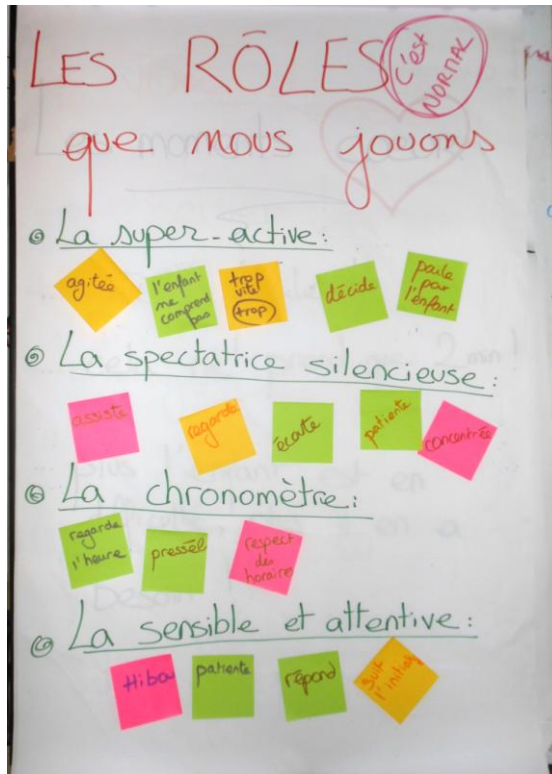 LES RÔLES
C'est
NORMAL
que nous jouons
La super-active:
agitée
l'enfant
ne
comprend
pas
trop
vite!
trop
décide
parle
par
l'enfant
La spectatrice silencieuse:
assiste
regarde
écoute
patiente
concentrée
La chronomètre:
regarde
l'heure
pressée
respect
des
horaires
La sensible et attentive:
Hibou
patiente
répond
suit